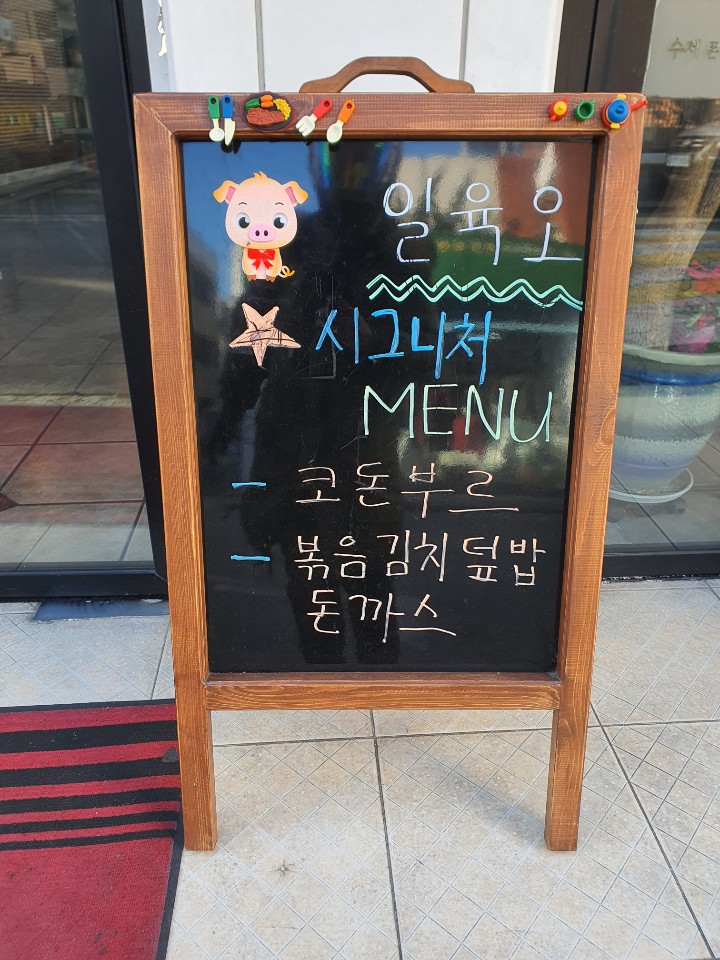 일육오
시그니처
MENU
- 코돈부르
- 볶음김치덮밥
돈까스
수제 돈